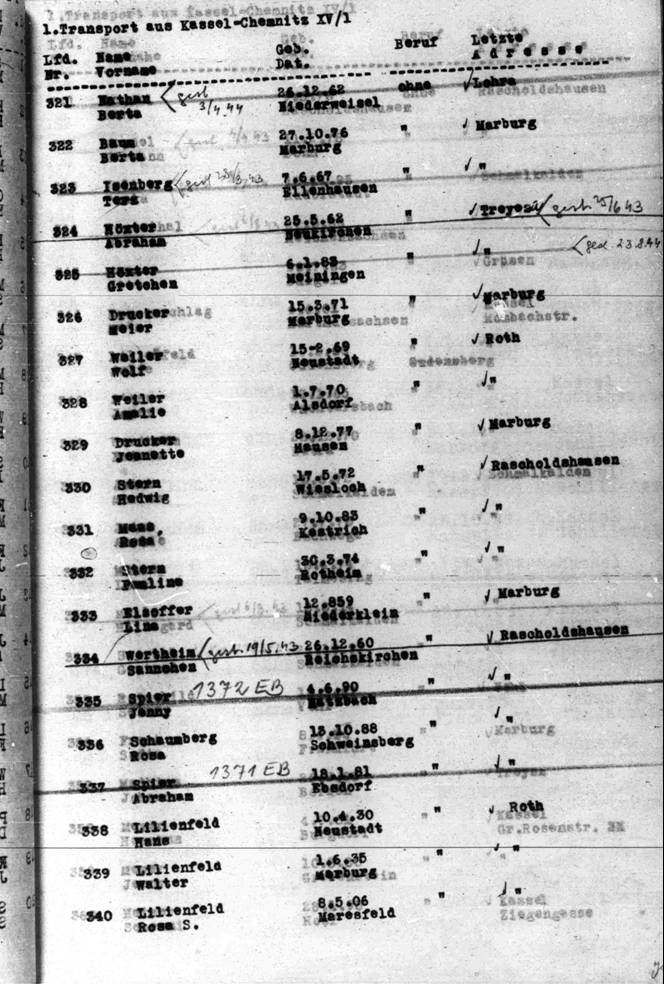 1.Transport aus Kassel-Chemnitz XV/1
Lfd. Name Geb. Beruf Letzte
Nr. Vorname Dat. Adresse
321 Nathan gest 26.12.62 ohne Lohra
Berta 3/4.44 Niederweisel
322 Baum 27.10.76 " Marburg
Berta Marburg
323 Isenberg gest 7.6.67 " "
Ellenhausen
324 Höxter 25.5.62 " Treysa gest. 25/6 43
Abraham Neukirchen
325 Höxter 6.1.83 " " gest. 23.8.44
Gretchen Meiningen
326 Drucker 15.3.71 " Marburg
Meier Marburg
327 Weiler 15.2.69 " Roth
Wolf Neustadt
328 Weiler 1.7.70 " "
Amalie Alsdorf
329 Drucker 8.12.77 " Marburg
Jeanette Hausen
330 Stern 17.5.72 " Rascholdshausen
Hedwig Wiesloch
331 Maas, 9.10.83 " "
Rosa Kestrich
332 Stern 30.3.74 " "
Pauline Rotheim
333 Elsoffer 12.859 " Marburg
Lina Niederklein
334 Wertheim gest. 19/5.43 26.12.60 " Rascholdshausen
Sannchen Reichskirchen
335 Spier 1372 EB 4.6.90 " "
Jenny
336 Schaumberg 13.10.88 " "
Rosa Schweinsberg
337 Spier 1371 EB 18.1.81 " "
Abraham Ebsdorf
338 Lilienfeld 10.4.30 " Roth
Hans Neustadt
339 Lilienfeld 1.6.35 " "
Walter Marburg
340 Lilienfeld 8.5.06 " "
Rosa S. Maresfeld